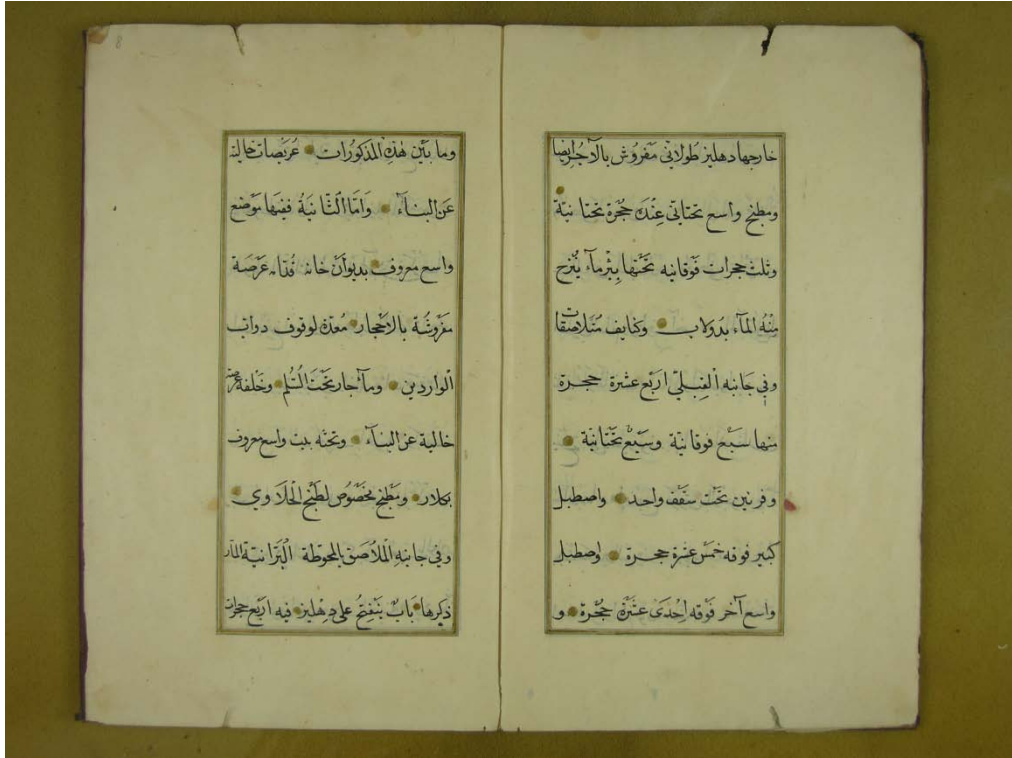 خارجها دهليز طولاني مفروش بالآجر ايضا
ومطبخ واسع تحتاني عنده حجرة تحتانية
وثلث حجرات فوقانيه تحتها بئر مآء ينزح
منه المآء بدولاب وكنايف متلاصقات
وفي جانبه القبلي اربع عشرة حجرة
منها سبع فوقانية وسبع تحتانية
وفرنين تحت سقف واحد واصطبل
كبير فوقه خمس عشرة حجرة واصطبل
واسع آخر فوقه احدى عشرة حجرة و
وما بين هذه المذكورات عريصات خالية
عن البنآء وامّا الثّانية ففيها موضع
واسع معروف بديوان خانه عرصة
مفروشة بالاحجار معدّة لوقوف دواب
الواردين ومآء جار تحت السلم وخلفه
خالية عن البنآء وتحته بيت واسع معروف
بكلار ومطبخ مخصوص لطبخ الحلاوي
وفي جانبه الملاصق بالمحوطة البرانية المار
ذكرها باب ينفتح على دهليز فيه اربع حجرات
8